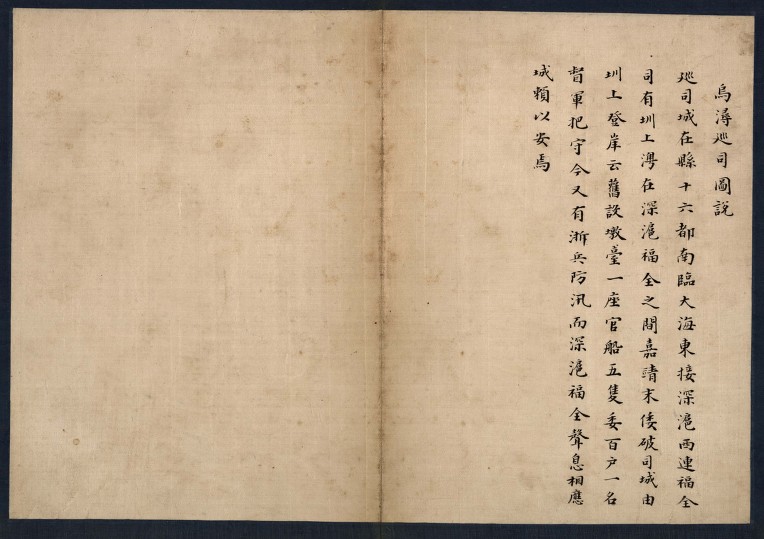 烏潯巡司圖說
巡司城在縣十六都南臨大海東接深滬西連福全
司有圳上灣在深滬福全之間嘉靖末倭破司城由
圳上登岸云舊設墩臺一座官船五隻委百戶一名
督軍把守今又有浙兵防汛而深滬福全聲息相應
城賴以安焉